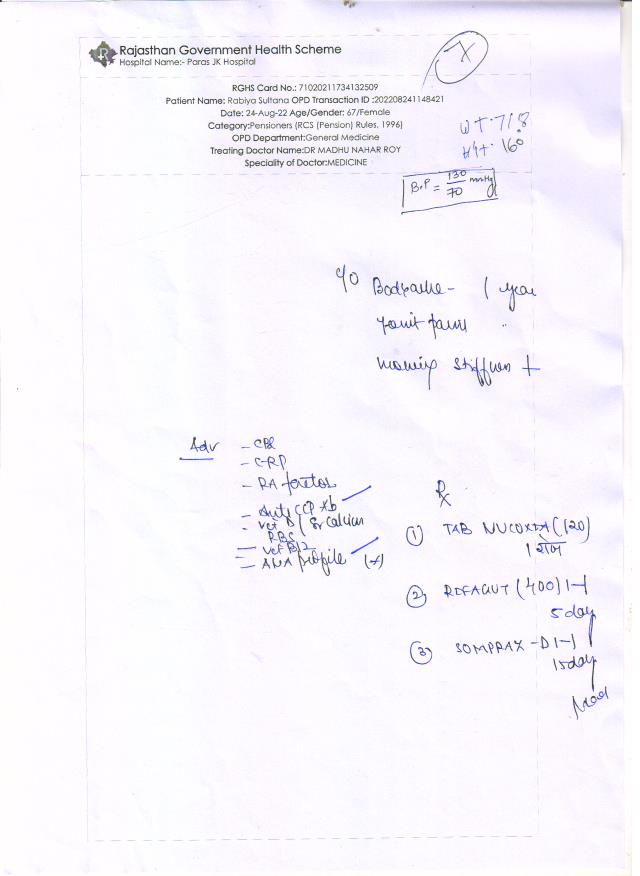 Rajasthan Government Health Scheme
Hospital Name:- Paras JK Hospital
RGHS Card No.: 71020211734132509
Patient Name: Rabiya Sultana OPD Transaction ID :202208241148421
Date: 24-Aug-22 Age/Gender: 67/Female
Category:Pensioners (RCS (Pension) Rules, 1996)
OPD Department:General Medicine
Treating Doctor Name:DR MADHU NAHAR ROY
Speciality of Doctor:MEDICINE
WT. 71.8
Hgt. 160
B.P = 130/70 mmHg
c/o Bodyache - 1 year
Joint pain "
Morning stiffness +
Adv - CBC
- CRP
- RA factor
- Anti CCP Ab
- Vit D / Sr Calcium
RBS
- Vit B12
- ANA profile
Rx
① TAB NUCOXIA (120)
② RIFAGUT (400) 1-1
5 day
③ SOMPRAZ-D 1-1
15 day